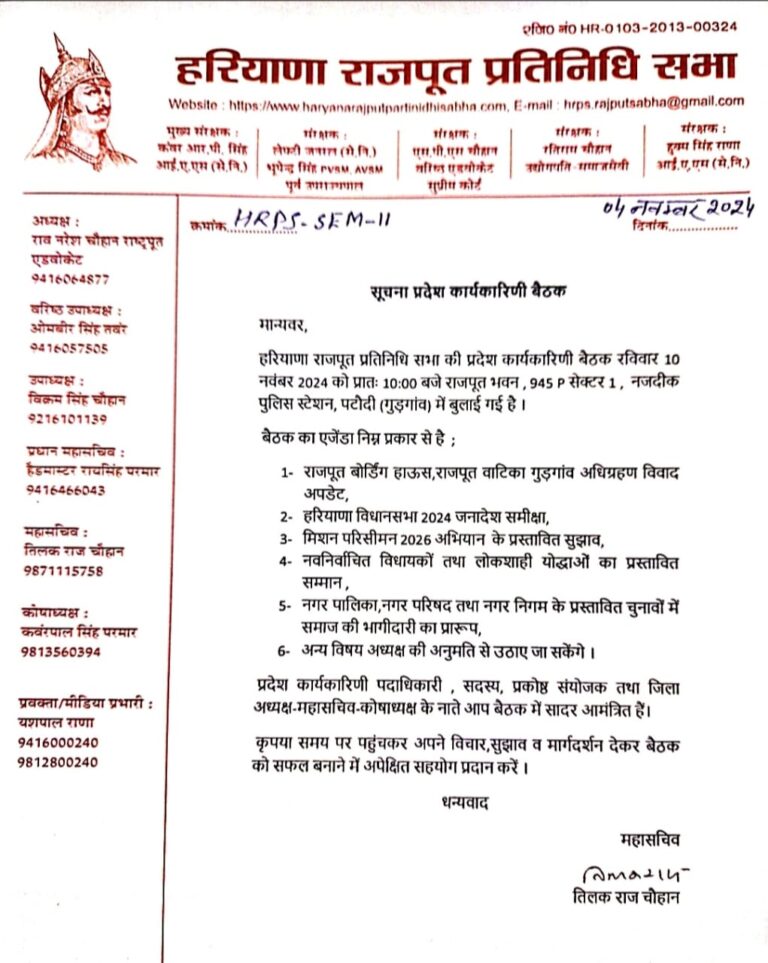 एजि० नं० HR-0103-2013-00324
हरियाणा राजपूत प्रतिनिधि सभा
Website : https://www.haryanarajputpartinidhisabha.com, E-mail : hrps.rajputsabha@gmail.com
मुख्य संरक्षक :
कंवर आर.पी. सिंह
आई.ए.एस (से.नि.)
संरक्षक :
लेफ्टी जनरल (से.नि.)
भूपेन्द्र सिंह PVSM, AVSM
पूर्व उपराज्यपाल
संरक्षक :
एस.पी.एस चौहान
वरिष्ठ एडवोकेट
सुप्रीम कोर्ट
संरक्षक :
रतिराम चौहान
उद्योगपति-समाजसेवी
संरक्षक :
हुक्म सिंह राणा
आई.ए.एस (से.नि.)
क्रमांक HRPS-SEM-11
04 नवम्बर 2024
दिनांक
अध्यक्ष :
राव नरेश चौहान राष्ट्रपूत
एडवोकेट
9416064877
वरिष्ठ उपाध्यक्ष :
ओमबीर सिंह तवंर
9416057505
उपाध्यक्ष :
विक्रम सिंह चौहान
9216101139
प्रधान महासचिव :
हैडमास्टर रायसिंह परमार
9416466043
महासचिव :
तिलक राज चौहान
9871115758
कोषाध्यक्ष :
कवंरपाल सिंह परमार
9813560394
प्रवक्ता/मीडिया प्रभारी :
यशपाल राणा
9416000240
9812800240
सूचना प्रदेश कार्यकारिणी बैठक
मान्यवर,
हरियाणा राजपूत प्रतिनिधि सभा की प्रदेश कार्यकारिणी बैठक रविवार 10
नवंबर 2024 को प्रातः 10:00 बजे राजपूत भवन , 945 P सेक्टर 1 , नजदीक
पुलिस स्टेशन, पटौदी (गुड़गांव) में बुलाई गई है ।
बैठक का एजेंडा निम्न प्रकार से है ;
1- राजपूत बोर्डिंग हाऊस,राजपूत वाटिका गुड़गांव अधिग्रहण विवाद
अपडेट,
2- हरियाणा विधानसभा 2024 जनादेश समीक्षा,
3- मिशन परिसीमन 2026 अभियान के प्रस्तावित सुझाव,
4- नवनिर्वाचित विधायकों तथा लोकशाही योद्धाओं का प्रस्तावित
सम्मान ,
5- नगर पालिका,नगर परिषद तथा नगर निगम के प्रस्तावित चुनावों में
समाज की भागीदारी का प्रारूप,
6- अन्य विषय अध्यक्ष की अनुमति से उठाए जा सकेंगे ।
प्रदेश कार्यकारिणी पदाधिकारी , सदस्य, प्रकोष्ठ संयोजक तथा जिला
अध्यक्ष-महासचिव-कोषाध्यक्ष के नाते आप बैठक में सादर आमंत्रित हैं।
कृपया समय पर पहुंचकर अपने विचार,सुझाव व मार्गदर्शन देकर बैठक
को सफल बनाने में अपेक्षित सहयोग प्रदान करें ।
धन्यवाद
महासचिव
तिलक राज चौहान